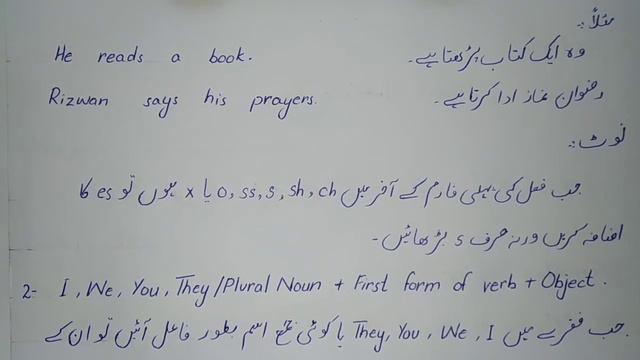 مثلاً:
He reads a book. وہ ایک کتاب پڑھتا ہے۔
Rizwan says his prayers. رضوان نماز ادا کرتا ہے۔
نوٹ:
جب فعل کی پہلی فارم کے آخر میں o, ss, s, sh, ch یا x ہوں تو es کا
اضافہ کریں ورنہ صرف s بڑھائیں۔
2- I, We, You, They/Plural Noun + First form of verb + Object.
جب فقرے میں They, You, We, I یا کوئی جمع اسم بطور فاعل آئیں تو ان کے